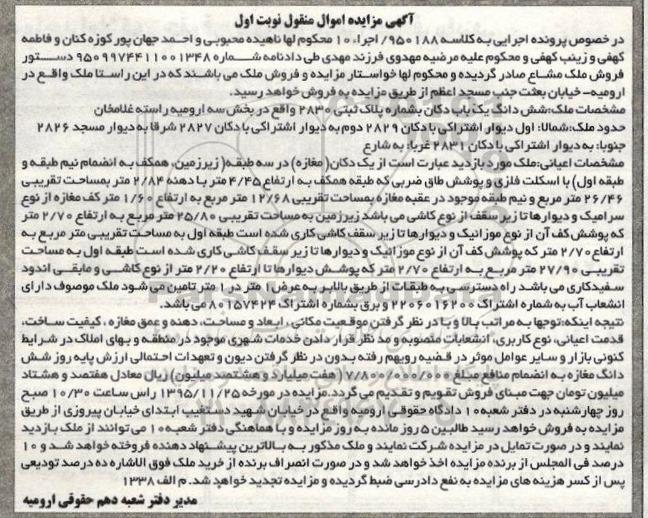 آگهی مزایده اموال منقول نوبت اول
در خصوص پرونده اجرایی به کلاسه ۹۵۰۱۸۸/ اجراء ۱۰ محکوم لها ناهیده محبوبی و احمد جهان پور کوزه کنان و فاطمه
کهفی و زینب کهفی و محکوم علیه مرضیه مهدوی فرزند مهدی طی دادنامه شماره ۹۵۰۹۹۷۴۴۱۱۰۰۱۳۴۸ دستور
فروش ملک مشاع صادر گردیده و محکوم لها خواستار مزایده و فروش ملک می باشند که در این راستا ملک واقع در
ارومیه- خیابان بعثت جنب مسجد اعظم از طریق مزایده به فروش خواهد رسید.
مشخصات ملک:شش دانگ یک باب دکان بشماره پلاک ثبتی ۲۸۳۰ واقع در بخش سه ارومیه راسته غلامخان
حدود ملک:شمالا: اول دیوار اشتراکی با دکان ۲۸۲۹ دوم به دیوار اشتراکی با دکان ۲۸۲۷ شرقا به دیوار مسجد ۲۸۲۶
جنوبا: به دیوار اشتراکی با دکان ۲۸۳۱ غربا: به شارع
مشخصات اعیانی:ملک مورد بازدید عبارت است از یک دکان( مغازه) در سه طبقه( زیرزمین، همکف به انضمام نیم طبقه و
طبقه اول) با اسکلت فلزی و پوشش طاق ضربی که طبقه همکف به ارتفاع ۴/۴۵ متر با دهنه ۲/۸۴ متر بمساحت تقریبی
۲۶/۴۶ متر مربع و نیم طبقه موجود در عقبه مغازه بمساحت تقریبی ۱۲/۶۸ متر مربع به ارتفاع ۱/۶۰ متر کف مغازه از نوع
سرامیک و دیوارها تا زیر سقف از نوع کاشی می باشد زیرزمین به مساحت تقریبی ۲۵/۸۰ متر مربع به ارتفاع ۲/۷۰ متر
که پوشش کف آن از نوع موزائیک و دیوارها تا زیر سقف کاشی کاری شده است طبقه اول به مساحت تقریبی متر مربع به
ارتفاع ۲/۷۰ متر که پوشش کف آن از نوع موزائیک و دیوارها تا زیر سقف کاشی کاری شده است طبقه اول به مساحت
تقریبی ۲۷/۹۰ متر مربع به ارتفاع ۲/۷۰ متر که پوشش دیوارها تا ارتفاع ۲/۲۰ متر از نوع کاشی و مابقی اندود
سفیدکاری می باشد راه دسترسی به طبقات از طریق بالابر به عرض ۱ متر در ۱ متر تامین می شود ملک موصوف دارای
انشعاب آب به شماره اشتراک ۲۲۰۶۰۱۶۲۰۰ و برق بشماره اشتراک ۸۰۱۵۷۴۲۴ می باشد.
نتیجه اینکه:توجها به مراتب بالا و با در نظر گرفتن موقعیت مکانی، ابعاد و مساحت، دهنه و عمق مغازه، کیفیت ساخت،
قدمت اعیانی، نوع کاربری، انشعابات منصوبه و مد نظر قرار دادن خدمات شهری موجود در منطقه و بهای املاک در شرایط
کنونی بازار و سایر عوامل موثر در قضیه رویهم رفته بدون در نظر گرفتن دیون و تعهدات احتمالی ارزش پایه روز شش
دانگ مغازه به انضمام منافع مبلغ ۷/۸۰۰/۰۰۰/۰۰۰( هفت میلیارد و هشتصد میلیون) ریال معادل هفتصد و هشتاد
میلیون تومان جهت مبنای فروش تقویم و تقدیم می گردد.مزایده در مورخه ۱۳۹۵/۱۱/۲۵ راس ساعت ۱۰/۳۰ صبح
روز چهارشنبه در دفتر شعبه ۱۰ دادگاه حقوقی ارومیه واقع در خیابان شهید دستغیب ابتدای خیابان پیروزی از طریق
مزایده به فروش خواهد رسید طالبین ۵ روز مانده به روز مزایده و با هماهنگی دفتر شعبه ۱۰ می توانند از ملک بازدید
نمایند و در صورت تمایل در مزایده شرکت نمایند و ملک مذکور به بالاترین پیشنهاد دهنده فروخته خواهد شد و ۱۰
درصد فی المجلس از برنده مزایده اخذ خواهد شد و در صورت انصراف برنده از خرید ملک فوق الاشاره ده درصد تودیعی
پس از کسر هزینه های مزایده به نفع دادرسی ضبط گردیده و مزایده تجدید خواهد شد. م الف ۱۳۳۸
مدیر دفتر شعبه دهم حقوقی ارومیه